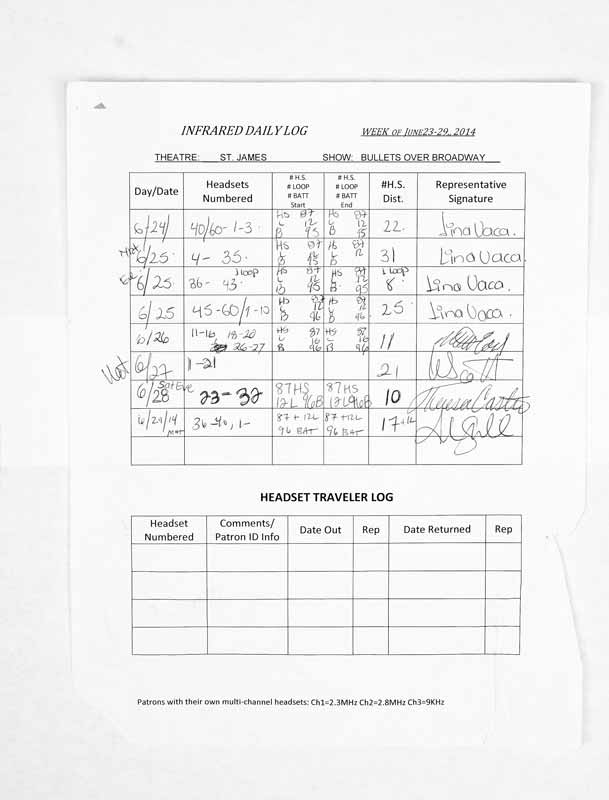 INFRARED DAILY LOG WEEK OF JUNE23-29, 2014
THEATRE: ST. JAMES SHOW: BULLETS OVER BROADWAY
Day/Date Headsets Numbered # H.S. # LOOP # BATT Start # H.S. # LOOP # BATT End #H.S. Dist. Representative Signature
6/24 40/60-1-3 HS 87 L 12 B 95 HS 87 L 12 B 95 22 Lina Vaca.
Mat 6/25 4-35. HS 87 L 12 B 95 HS 87 L 12 B 31 Lina Vaca.
Eve 6/25 36-43 1 loop HS 87 L 12 B 95 HS 87 L 12 B 95 1 loop 8 Lina Vaca.
6/25 45-60/1-10 HS 87 L 12 B 96 HS 87 L 12 B 96 25 Lina Vaca.
6/26 11-16 18-20 26-27 HS 87 L 12 B 96 HS 87 L 12 B 96 11
Mat 6/27 1-21 21
6/28 Sat Eve 23-32 87HS 12L 96B 87HS 12L 96B 10 Theresa Castro
6/29/14 MAT 36-40, 1- 87+12L 96 BAT 87+12L 96 BAT 17
HEADSET TRAVELER LOG
Headset Numbered Comments/ Patron ID Info Date Out Rep Date Returned Rep
Patrons with their own multi-channel headsets: Ch1=2.3MHz Ch2=2.8MHz Ch3=9KHz